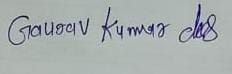 Gaurav Kumar das